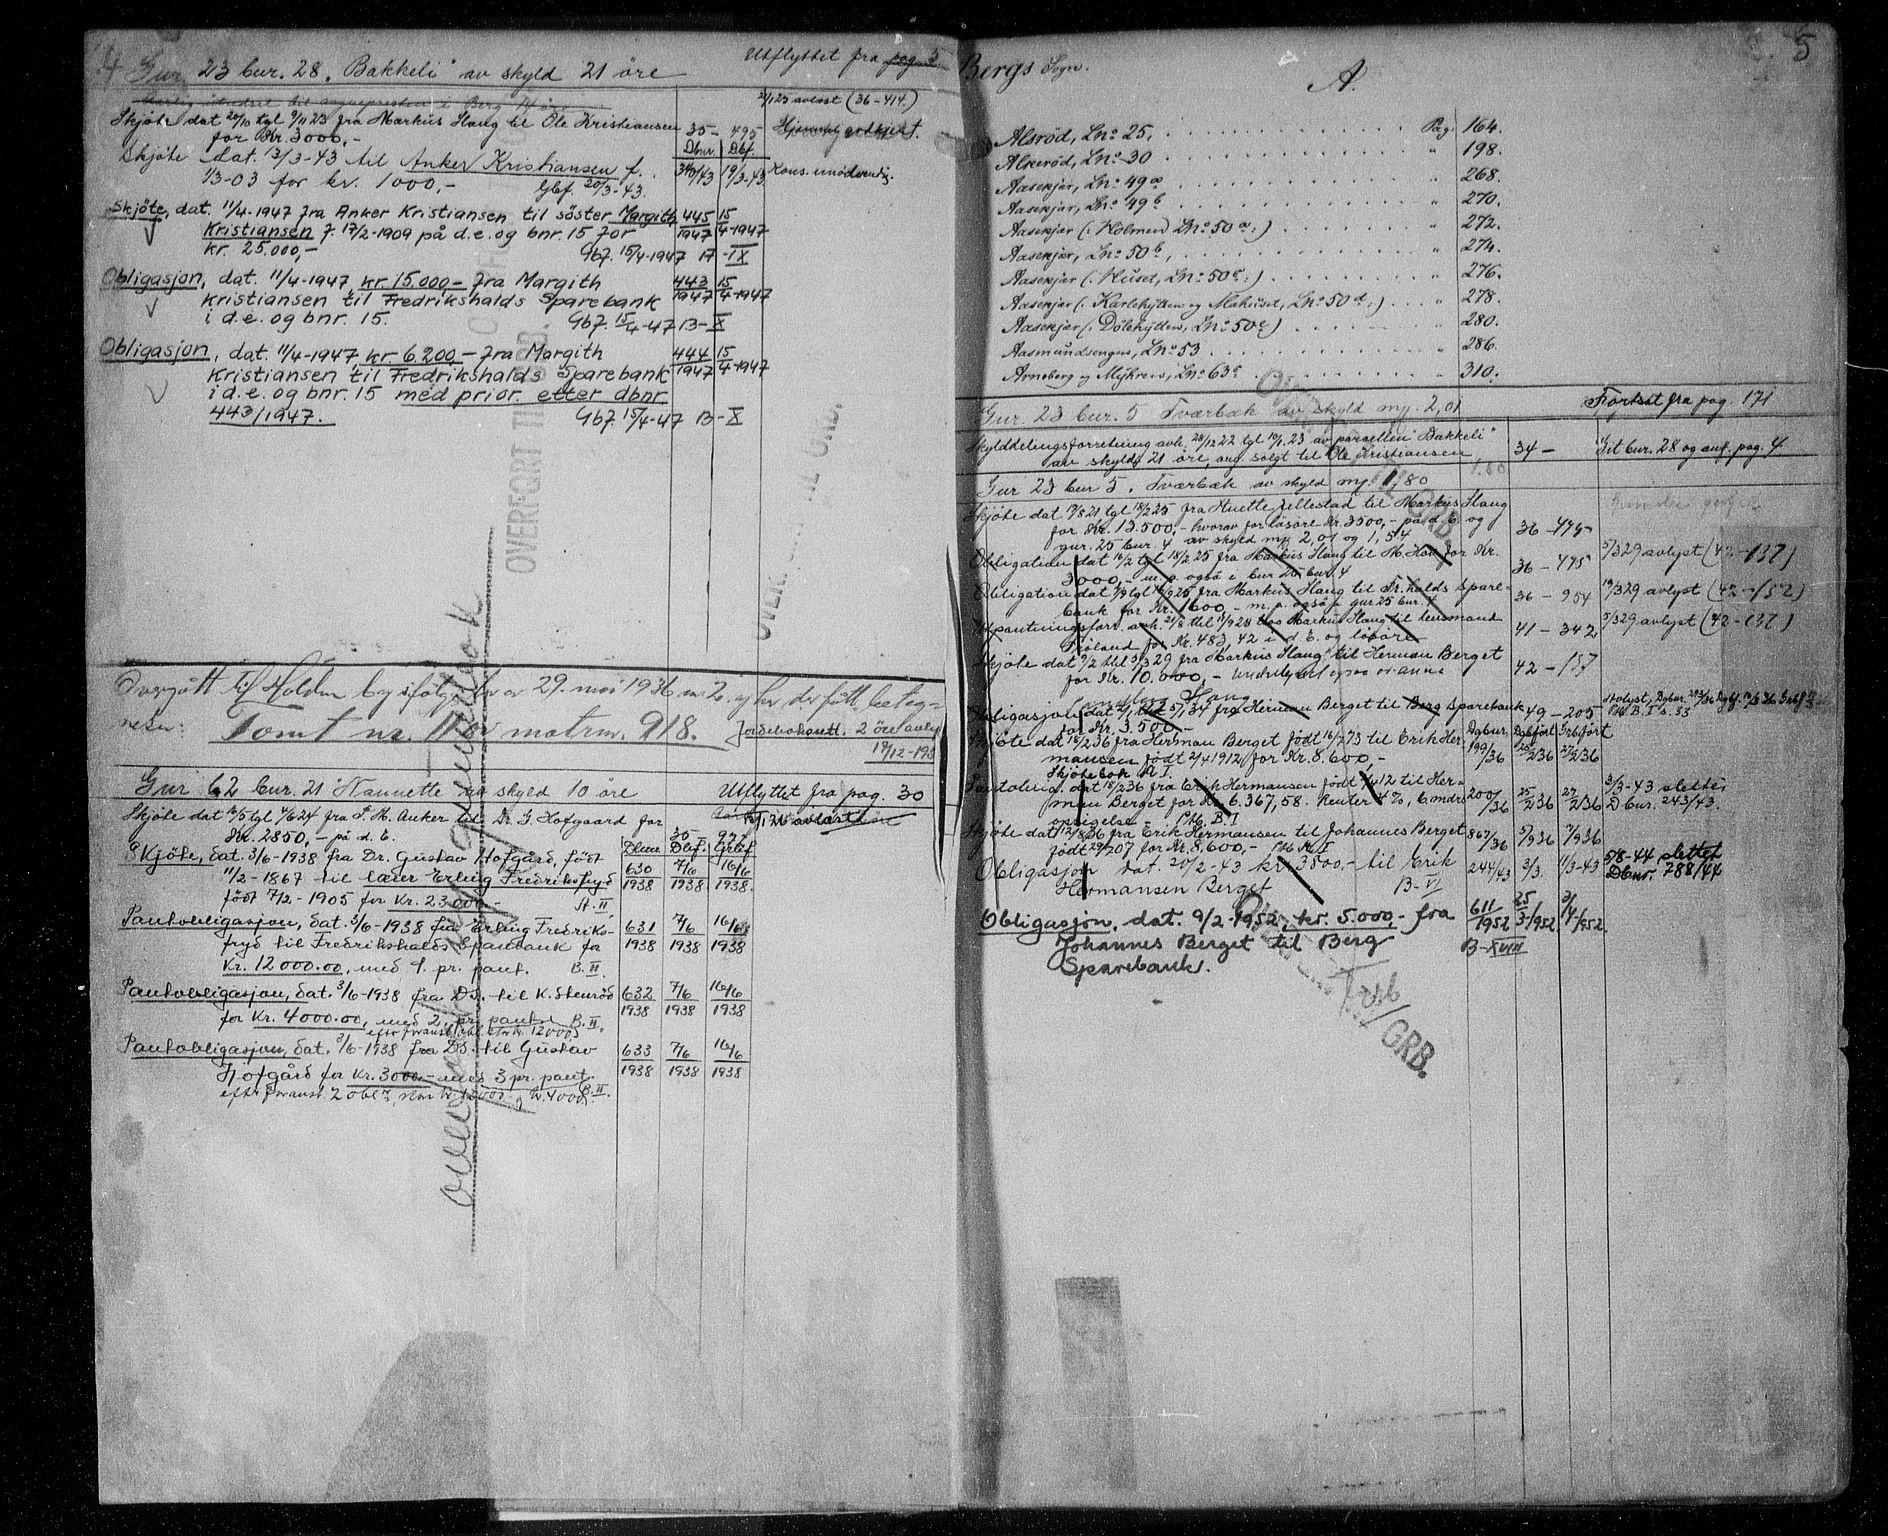 4 Gnr 23 bnr. 28. "Bakkeli" av skyld 21 öre Utflyttet fra pag. 5
2/1 25 avløst (36-414.)
Skjöte dat 20/10 tgl 9/11 23 fra Markus Haug til Ole Kristiansen 35 - 495
for Kr. 3000,-
Dbnr. Dbf.
Skjöte dat. 13/3-43 til Anker Kristiansen f. 340/43 19/3-43. Kons. unödvendig.
1/3-03 for kr. 1000,- Gbf. 20/3-43.
Skjöte, dat. 11/4-1947 fra Anker Kristiansen til söster Margith 445/1947 15/4-1947
Kristiansen f. 17/2-1909 på d.e. og bnr. 15 for
kr. 25.000,- Gbf. 15/4-1947 17-IX
Obligasjon, dat. 11/4-1947, kr 15.000- fra Margith 443/1947 15/4-1947
Kristiansen til Fredrikshalds Sparebank
i d.e. og bnr. 15. Gbf. 15/4-47 B-X
Obligasjon, dat. 11/4-1947, kr 6.200- fra Margith 444/1947 15/4-1947
Kristiansen til Fredrikshalds Sparebank
i d.e. og bnr. 15 med prior. etter dbnr.
443/1947. Gbf. 15/4-47 B-X
OVERFØRT TIL GRB.
Overgått til Halden by ifölge lov av 29. mai 1936 nr 2. og har der fått beteg-
nelsen: Tomt nr. 11 av matrnr. 918. Jordebokavg. 2 öre avløst
19/12-193
Gnr 62 bnr. 21 "Nannette" av skyld 10 öre Utflyttet fra pag. 30
Skjöte dat 10/5 tgl 4/6 24 fra P. M. Anker til Dr. G. Hofgaard for 35 - 977
Kr. 2850,- på d. E.
Dbnr Dbf. Grbf
Skjöte, dat. 3/6-1938 fra Dr. Gustav Hofgård, född 630/1938 7/6 1938 10/6 1938.
11/2-1867 til lærer Erling Fredriksfryd
född 7/12-1905 for Kr. 23000,- A. II
Pantobligasjon, dat. 3/6-1938 fra Erling Fredriks- 631/1938 7/6 1938 10/6 1938
fryd til Fredrikshalds Sparebank for
Kr. 12000.00, med 1. pr. pant. B. II
Pantobligasjon, dat. 3/6-1938 fra DS. til K. Stenröd 632/1938 7/6 1938 10/6 1938
for Kr. 4000.00, med 2. pr. pant B. II.
Pantobligasjon, dat. 3/6-1938 fra DS. til Gustav 633/1938 7/6 1938 10/6 1938
Hofgård for Kr. 3000.- med 3 pr. pant. B. II.
Bergs Sogn. A. 5
Alsröd, Lno 25, Pag. 164.
Alkeröd, Lno 30 " 198.
Aaserjær, Lno 49a " 268.
Aaserjær, Lno 49b " 270.
Aaserjær (: Holmen, Lno 50a :) " 272.
Aaserjær, Lno 50b, " 274.
Aaserjær (: Huset, Lno 50c :) " 276.
Aaserjær (: Karlehytten og Mahuset, Lno 50d :) " 278.
Aaserjær (: Dölehytten, Lno 50e) " 280.
Aasmundsengen, Lno 53 " 286.
Arneberg og Myhren, Lno 63a " 310.
Gnr. 23 bnr. 5 Tværbæk av skyld mp. 2,01 Fortsat fra pag. 171
Skylddelingsforretning avh. 28/12 22 tgl 10/1 23 av parcellen "Bakkeli" 34 - Git bnr. 28 og anf. pag. 4
av skyld 21 öre, ang. solgt til Ole Kristiansen
Gnr 23 bnr 5. Tværbæk av skyld mp. 1,80
Skjöte dat 17/8 21 tgl 18/2 25 fra Huette Jellestad til Markus Haug
for Kr. 13.500,- hvorav for lösöre Kr. 3500,- på d. E. og 36 - 475
gnr. 25 bnr. 4 av skyld mp 2,01 og 1,54
Obligation dat 16/2 tgl 18/2 25 fra Markus Haug til M. Hov for Kr. 36 - 475 5/3 29 avlyst (42-137)
3000,- m. p. også i bnr 25 bnr. 4
Obligation dat 1/9 tgl 10/9 25 fra Markus Haug til Fr.halds Spare- 36 - 954 19/3 29 avlyst (42-152)
bank for Kr. 1600,- m. p. også i gnr 25 bnr. 4
Utpantningsforr. avh. 21/8 tgl 1/9 28 hos Markus Haug til lensmand 41 - 342 5/3 29 avlyst (42-137)
for Kr. 483,42 i d. E. og lösöre
Skjöte dat 2/2 tgl 5/3 29 fra Markus Haug til Herman Berget 42 - 137
for Kr. 10.000,-
Obligasjon dat 34 fra Herman Berget til Berg Sparebank 49 - 205
for Kr. 3.500.-
Dgbnr. Dgbført Grbført
Skjöte dat 15/2 36 fra Herman Berget født 16/2 73 til Erik Her- 199/36 25/2 36 27/2 36
mansen födt 2/4 1912, for Kr. 8.600,-
Skjötebok A I.
Pantobligasjon dat 15/2 36 fra Erik Hermansen födt 2/4 12 til Her- 200/36 25/2 36 27/2 36 3/3-43 slettet
man Berget for Kr 6.367,58. Renter 4%, 6 mdrs Dbnr. 243/43.
opsigelse - Ptb. B. I
Skjöte dat 12/8 36 fra Erik Hermansen til Johannes Berget 867/36 5/9 36 7/9 36
födt 29/7 07 for Kr. 8.600,-
Obligasjon dat. 20/2-43 kr. 3500.- til Erik 244/43 3/3. 11/3-43 5/8-44 slettet
Hermansen Berget B-VI Dbnr. 788/44
Obligasjon, dat. 9/2-1952, kr. 5.000,- fra 611/1952 25/3-1952 3/4-1952
Johannes Berget til Berg B-XVIII
Sparebank.
GRB.